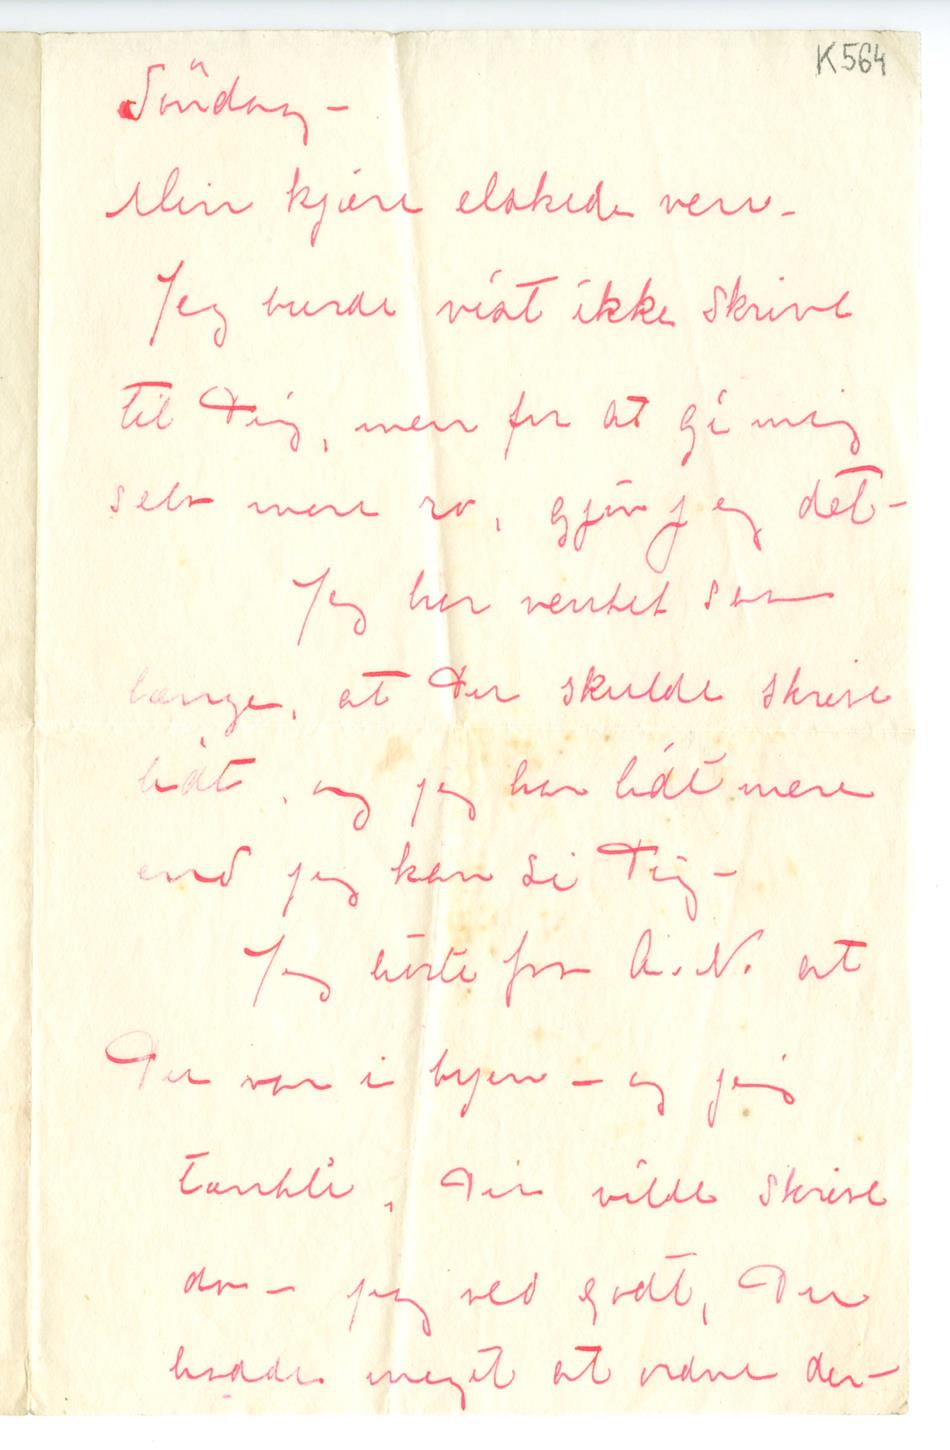 K564
Söndag –
Min kjære elskede ven –
Jeg burde vist ikke skrive
til Dig, men for at gi mig
selv mere ro, gjör jeg det –
Jeg har ventet saa
længe, at Du skulde skrive
lidt, og jeg har lidt mere
end jeg kan si Dig –
Jeg hörte fra A.N. at
Du var i byen – og jeg
tænkte, Du vilde skrive
da – jeg ved godt, Du
hadde meget at ordne der –